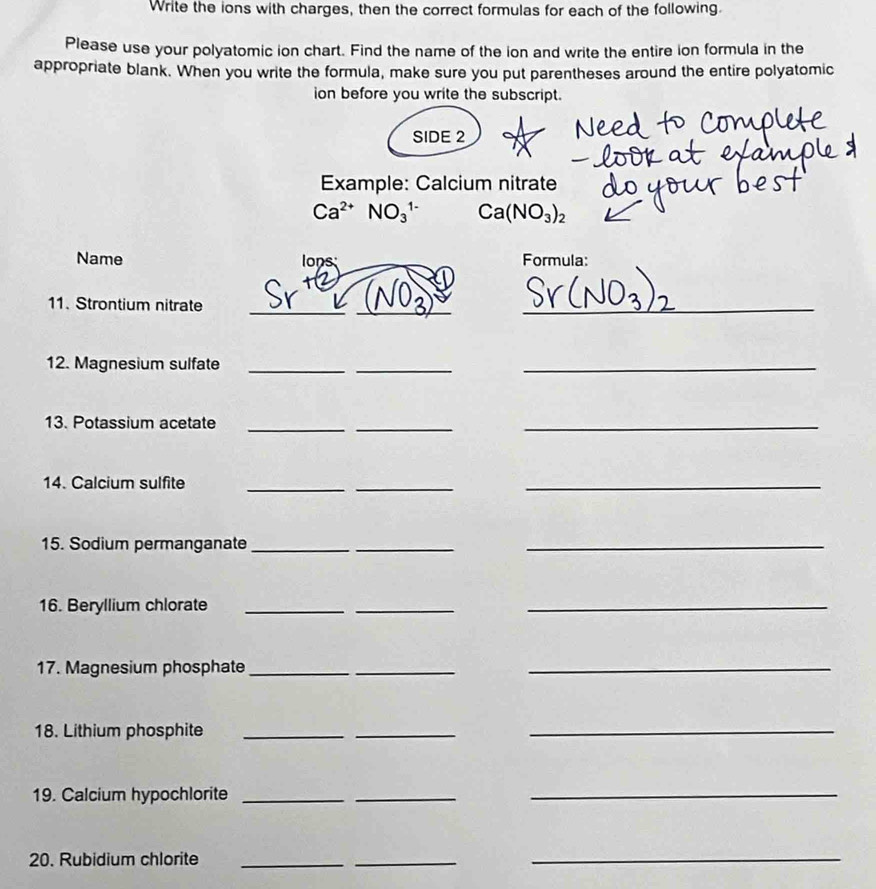 Write the ions with charges, then the correct formulas for each of the following.
Please use your polyatomic ion chart. Find the name of the ion and write the entire ion formula in the
appropriate blank. When you write the formula, make sure you put parentheses around the entire polyatomic
ion before you write the subscript.
SIDE 2 ☆ Need to complete
- look at example &
do your best
Example: Calcium nitrate
Ca²⁺ NO₃¹⁻ Ca(NO₃)₂
Name Ions: Formula:
11. Strontium nitrate Sr⁺² (NO₃)⁻¹ Sr(NO₃)₂
12. Magnesium sulfate
13. Potassium acetate
14. Calcium sulfite
15. Sodium permanganate
16. Beryllium chlorate
17. Magnesium phosphate
18. Lithium phosphite
19. Calcium hypochlorite
20. Rubidium chlorite